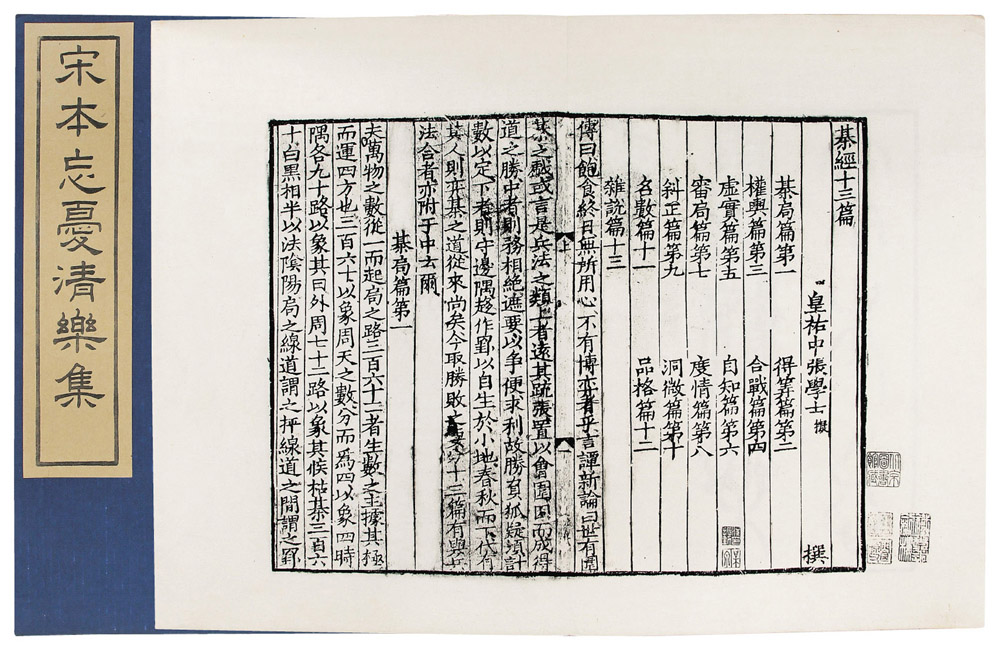 宋本忘憂清樂集
棊經十三篇
皇祐中張學士擬撰
棊局篇第一 得筭篇第二
權輿篇第三 合戰篇第四
虛實篇第五 自知篇第六
審局篇第七 度情篇第八
斜正篇第九 洞微篇第十
名數篇十一 品格篇十二
雜說篇十三
傳曰飽食終日無所用心不有博弈者乎言譚新論曰世有圍
棊之戲或言是兵法之類上者遠其疏張置以會圍因而成得
道之勝中者則務相絕遮要以争便求利故勝負狐疑須計
數以定下者則守邊隅趍作罫以自生於小地春秋而下代有
其人則弈棊之道從來尚矣今取勝敗之要分十三篇有與兵
法合者亦附于中云爾
棊局篇第一
夫萬物之數從一而起局之路三百六十一者生數之主據其極
而運四方也三百六十以象周天之數分而爲四以象四時
隅各九十路以象其日外周七十二路以象其候枯棊三百六
十白黑相半以法陰陽局之線道謂之枰線道之間謂之罫
上
一